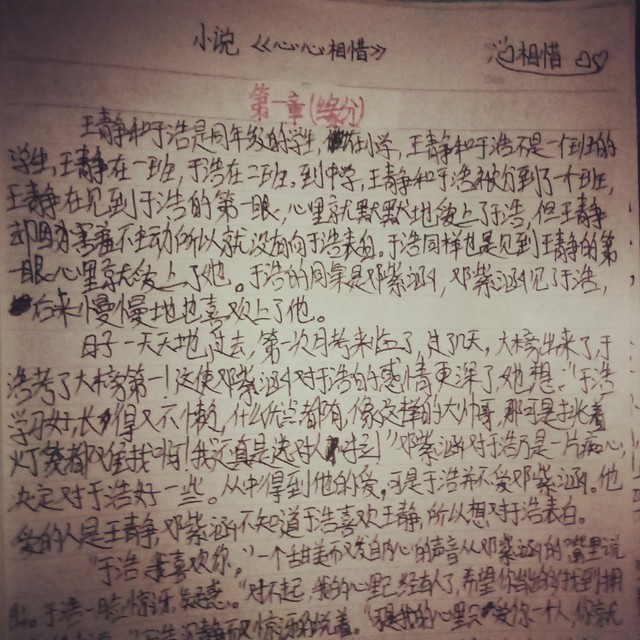 小说《心心相惜》
心相惜
第一章(缘分)
王静和于浩是同年级的学生,在小学,王静和于浩不是一个班的
学生,王静在一班,于浩在二班。到中学,王静和于浩被分到了一个班,
王静在见到于浩的第一眼,心里就默默地爱上了于浩,但王静
却因为害羞不主动所以就没有向于浩表白。于浩同样也是见到王静的第
一眼心里就爱上了他。于浩的同桌是邓紫涵,邓紫涵见了于浩,
后来慢慢地也喜欢上了他。
日子一天天地过去,第一次月考来临了,过了几天,大榜出来了,于
浩考了大榜第一!这使邓紫涵对于浩的感情更深了,她想:"于浩
学习好,长得又不懒,什么优点都有,像这样的大帅哥,那可是挑着
灯笼都难找啊!我还真是选对人了"邓紫涵对于浩是一片痴心,
决定对于浩好一些。从中得到他的爱。可是于浩并不爱邓紫涵。他
爱的人是王静,邓紫涵不知道于浩喜欢王静,所以想对于浩表白。
"于浩,我喜欢你。"一个甜美而又发自内心的声音从邓紫涵的嘴里说
出。于浩一脸惊讶、疑惑。"对不起,我的心里已经有人了,希望你能找到
于浩 而又惊讶的说着。 我的心里只爱你一个人,你就